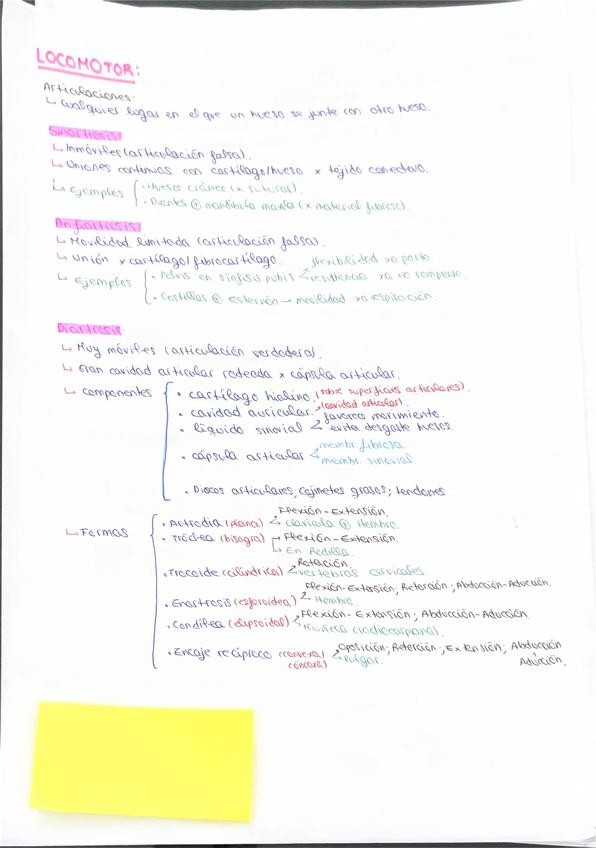 LOCOMOTOR:
Articulaciones:
↳ Cualquier lugar en el que un hueso se junte con otro hueso.
Sinartrosis:
↳ Inmóviles (articulación falsa).
↳ Uniones continuas con cartílago/hueso x tejido conectivo.
↳ Ejemplos
· Huesos cráneo (x suturas).
· Dientes @ mandíbula maxila (x material fibroso).
Anfiartrosis:
↳ Movilidad limitada (articulación falsa).
↳ Unión x cartílago/fibrocartílago.
↳ Ejemplos
· Pelvis en sínfisis pubis
flexibilidad xa parto
resistencia xa no romperse.
· Costillas @ Esternón → movilidad xa respiración.
Diartrosis:
↳ Muy móviles (articulación verdadera).
↳ Gran cavidad articular rodeada x cápsula articular.
↳ componentes
· cartílago hialino. (sobre superficies articulares).
· cavidad auricular. (cavidad articular)
· líquido sinovial
favorece movimiento.
evita desgaste huesos.
· cápsula articular
membr. fibrosa.
membr. sinovial.
· Discos articulares, cojinetes grasos; tendones.
↳ Formas
· Artrodia (plana)
Flexión-Extensión.
Clavícula @ Hombro.
· Tróclea (bisagra)
Flexión-Extensión.
En Rodilla.
· Trocoide (cilíndrica)
Rotación.
vertebras cervicales
· Enartrosis (esferoidea)
Flexión-Extensión; Rotación; Abducción-Aducción.
Hombro.
· Condílea (elipsoidal)
Flexión-Extensión; Abducción-Aducción.
Muñeca (radiocarpiana).
· Encaje recíproco (convexa/cóncava)
Oposición; Rotación; Extensión; Abducción
Aducción.
Pulgar.